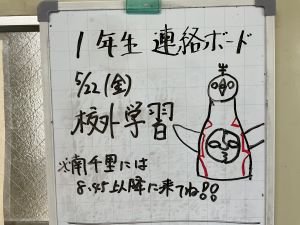 1年生 連絡ボード
5/22(金)
校外学習
※南千里には
8:45以降に来てね!!